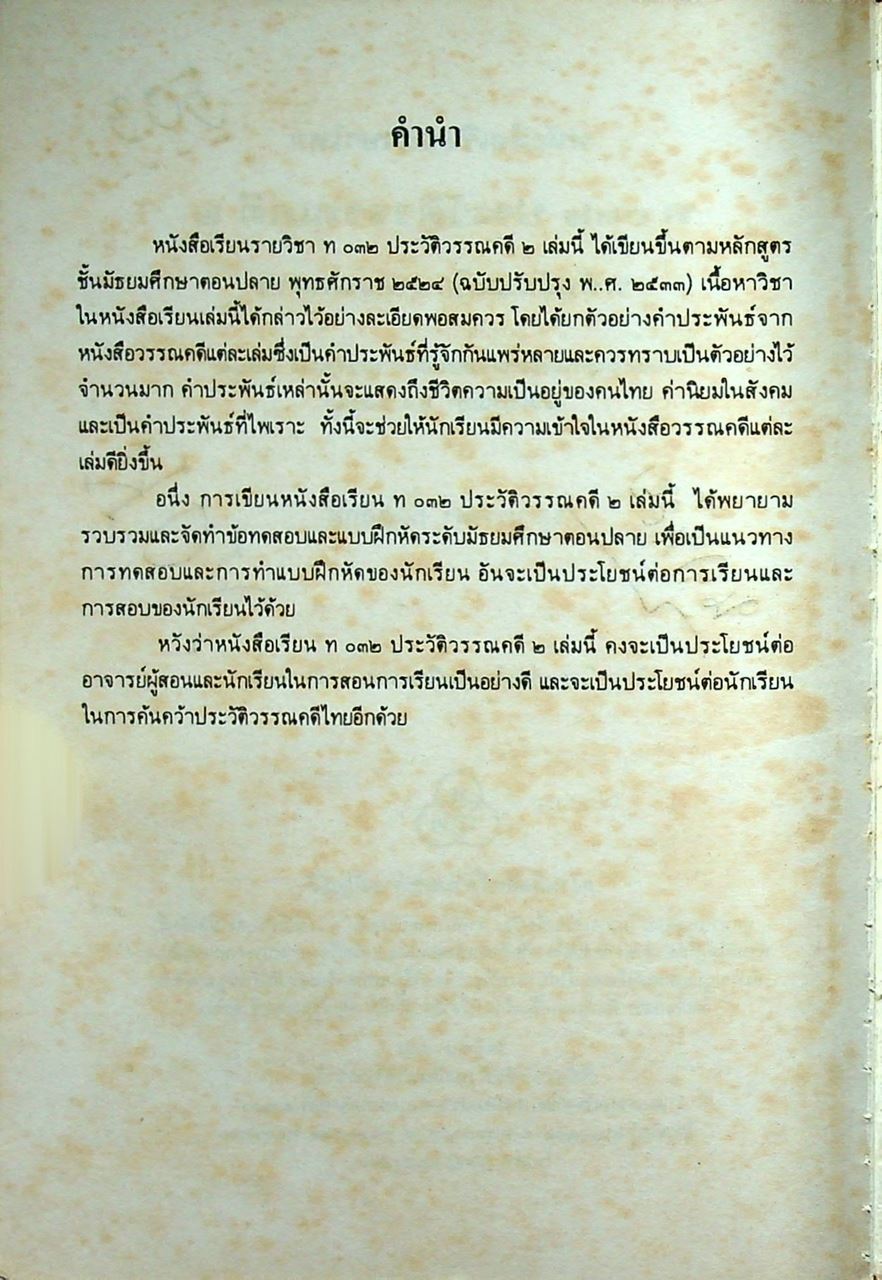 คำนำ
หนังสือเรียนรายวิชา ท ๐๓๒ ประวัติวรรณคดี ๒ เล่มนี้ ได้เขียนขึ้นตามหลักสูตร
ชั้นมัธยมศึกษาตอนปลาย พุทธศักราช ๒๕๒๔ (ฉบับปรับปรุง พ..ศ. ๒๕๓๓) เนื้อหาวิชา
ในหนังสือเรียนเล่มนี้ได้กล่าวไว้อย่างละเอียดพอสมควร โดยได้ยกตัวอย่างคำประพันธ์จาก
หนังสือวรรณคดีแต่ละเล่มซึ่งเป็นคำประพันธ์ที่รู้จักกันแพร่หลายและควรทราบเป็นตัวอย่างไว้
จำนวนมาก คำประพันธ์เหล่านั้นจะแสดงถึงชีวิตความเป็นอยู่ของคนไทย ค่านิยมในสังคม
และเป็นคำประพันธ์ที่ไพเราะ ทั้งนี้จะช่วยให้นักเรียนมีความเข้าใจในหนังสือวรรณคดีแต่ละ
เล่มดียิ่งขึ้น
อนึ่ง การเขียนหนังสือเรียน ท ๐๓๒ ประวัติวรรณคดี ๒ เล่มนี้ ได้พยายาม
รวบรวมและจัดทำข้อทดสอบและแบบฝึกหัดระดับมัธยมศึกษาตอนปลาย เพื่อเป็นแนวทาง
การทดสอบและการทำแบบฝึกหัดของนักเรียน อันจะเป็นประโยชน์ต่อการเรียนและ
การสอบของนักเรียนไว้ด้วย
หวังว่าหนังสือเรียน ท ๐๓๒ ประวัติวรรณคดี ๒ เล่มนี้ คงจะเป็นประโยชน์ต่อ
อาจารย์ผู้สอนและนักเรียนในการสอนการเรียนเป็นอย่างดี และจะเป็นประโยชน์ต่อนักเรียน
ในการค้นคว้าประวัติวรรณคดีไทยอีกด้วย